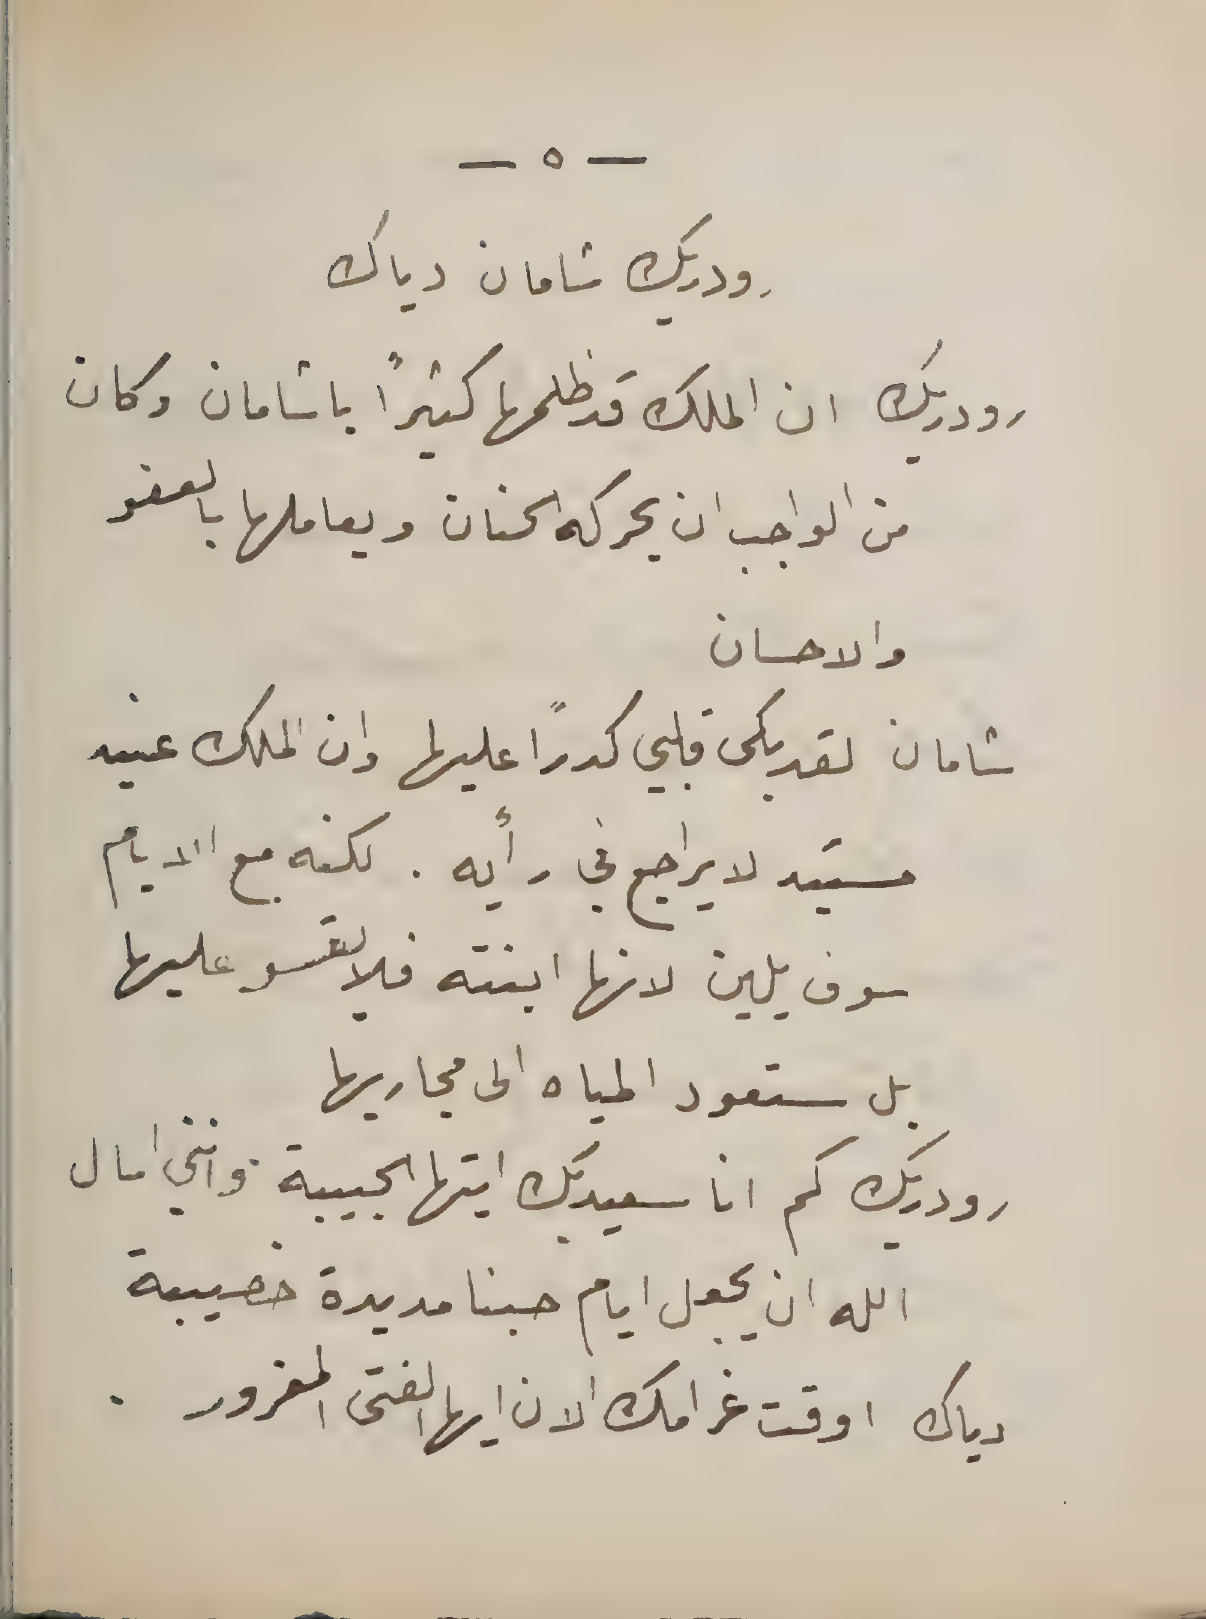 — ٥ —
رودريك شامان دياك
رودريك ان الملك قد ظلمها كثيرًا يا شامان وكان
من الواجب ان يحركه الحنان ويعاملها بالعفو
والاحسان
شامان لقد بكى قلبي كدرًا عليها وان الملك عنيد
مستبد لا يراجع في رأيه . لكنه مع الايام
سوف يلين لانها ابنته فلا يقسو عليها
بل ستعود المياه الى مجاريها
رودريك كم انا سعيد بك ايتها الحبيبة وانني اسال
الله ان يجعل ايام حبنا مديدة خصيبة
دياك اوقت غرامك الان ايها الفتى المغرور .